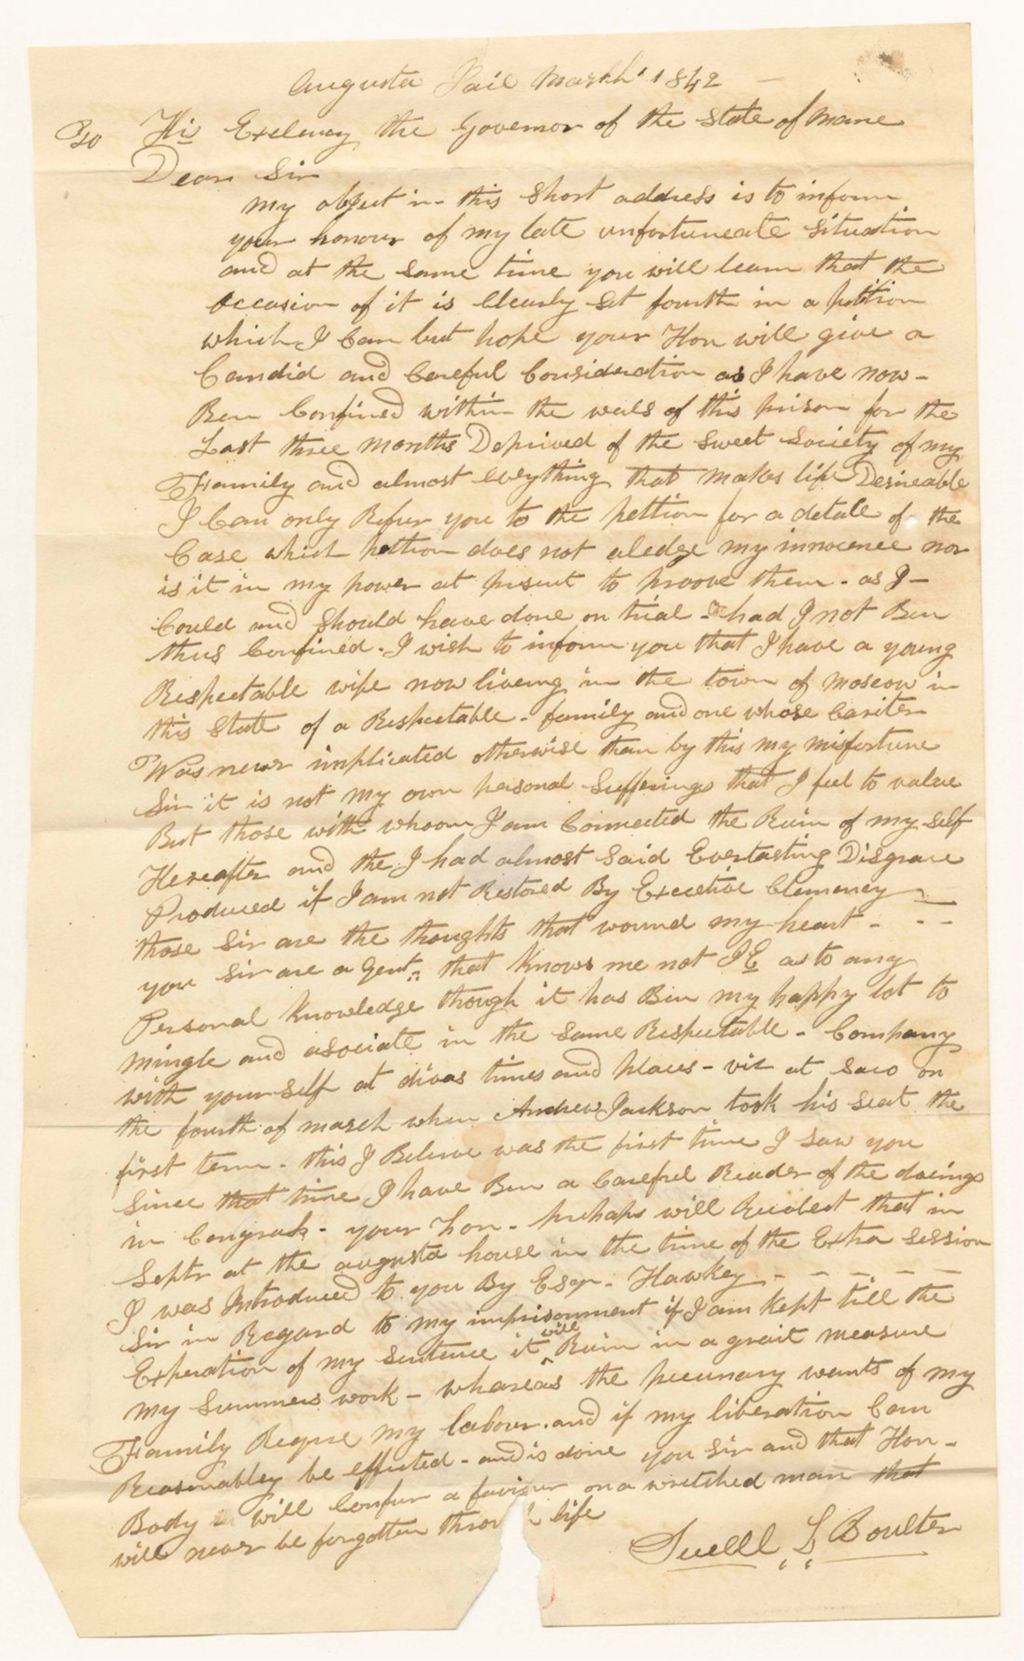 Augusta Jail March 1842
To His Exelency the Governor of the State of Maine
Dear Sir
My object in this Short address is to inform
your honour of my late unfortuneate Situation
and at the Same time you will learn that the
occasion of it is Clearly Set fourth in a petition
which I Can but hope your Hon will give a
Candid and Careful Consideration as I have now -
Ben Confined within the wals of this prison for the
Last three months Deprived of the Sweet Society of my
Family and almost evrything that makes life Desireable
I Can only Refer you to the pettion for a detale of the
Case which pettion does not aledge my innocence nor
is it in my power at present to proove them - as I -
Could and Should have done on trial - had I not Ben
thus Confined. I wish to inform you that I have a young
Respectable wife now liveing in the town of Moscow in
this State of a Respectable - family and one whose Cariter
Was never implicated otherwise than by this my misfortune
Sir it is not my own personal Sufferings that I feel to value
But those with whoom I am Connected the Ruin of my Self
Hereafter and the I had almost Said Evertasting Disgrace
Produced if I am not Restored By Exectiive Clemency -
those Sir are the thoughts that wound my heart - - -
you Sir are a Gent.. that knows me not I E as to any
Personal knowledge though it has Ben my happy lot to
mingle and asociate in the Same Respectable - Company
with your Self at divas times and places - viz at Saco on
the fourth of march when Andrew Jackson took his Seat the
first term - this I Beleve was the first time I Saw you
Since that time I have Ben a Careful Reader of the doeings
in Congrass - your Hon - perhaps will Recolect that in
Septr at the augusta house in the time of the Extra Session
I was Introduced to you By Esqr - Hawkey - - - - -
Sir in Regard to my imprisonment if I am Kept till the
Experation of my Sentence it will Ruin in a grait measure
my Summers work - whareas the pecunary wants of my
Family Reqire my labour. and if my liberation Can
Reasonabley be effected - and is done you Sir and that Hon -
Body will Confur a faviour on a wretched man that
will never be forgotten throu life
Suell S Boulter